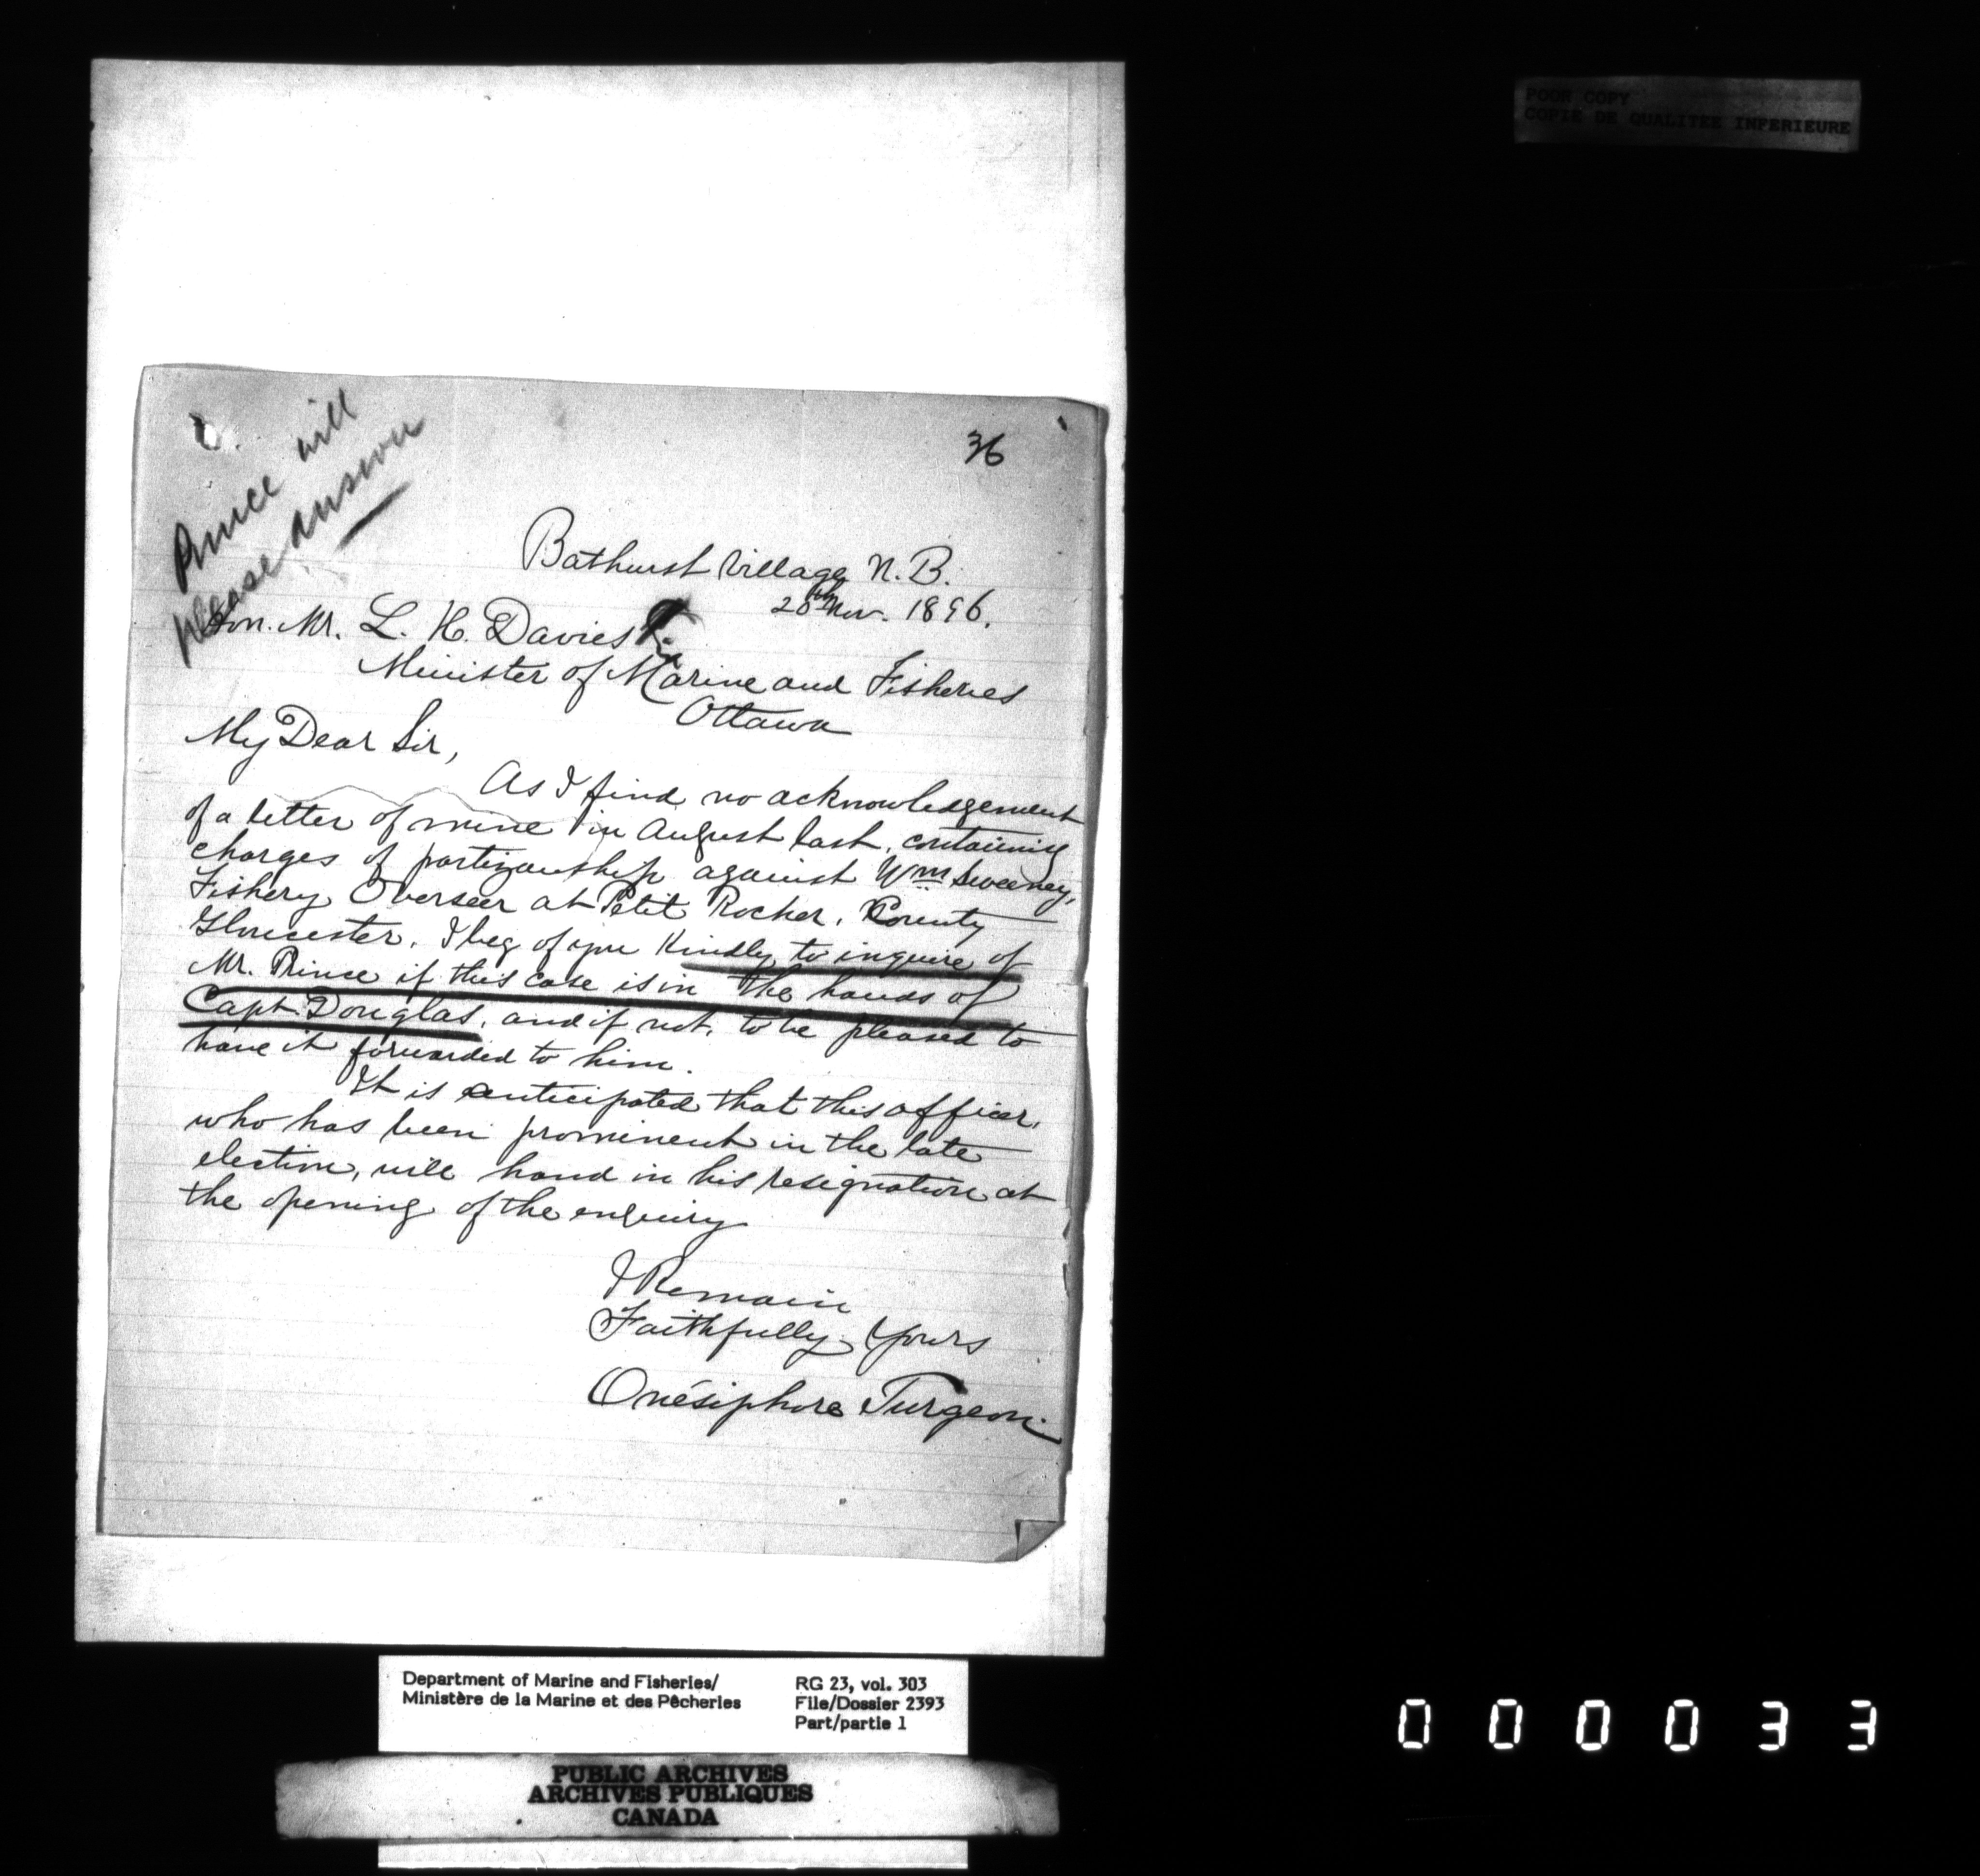 POOR COPY
COPIE DE QUALITEE INFERIEURE
36
Prince will
please answer
Bathurst Village N.B.
20th Nov. 1896.
Hon. Mr. L. H. Davies
Minister of Marine and Fisheries
Ottawa
My Dear Sir,
As I find no acknowledgement
of a letter of mine in August last, containing
charges of partizanship against Wm Sweeney,
Fishery Overseer at Petit Rocher, County
Gloucester, I beg of you Kindly to inquire of
Mr. Prince if this case is in the hands of
Capt. Douglas, and if not, to be pleased to
have it forwarded to him.
It is anticipated that this officer,
who has been prominent in the late
election, will hand in his resignation at
the opening of the enquiry
I Remain
Faithfully Yours
Onésiphore Turgeon
Department of Marine and Fisheries/
Ministère de la Marine et des Pêcheries
RG 23, vol. 303
File/Dossier 2393
Part/partie 1
PUBLIC ARCHIVES
ARCHIVES PUBLIQUES
CANADA
000033